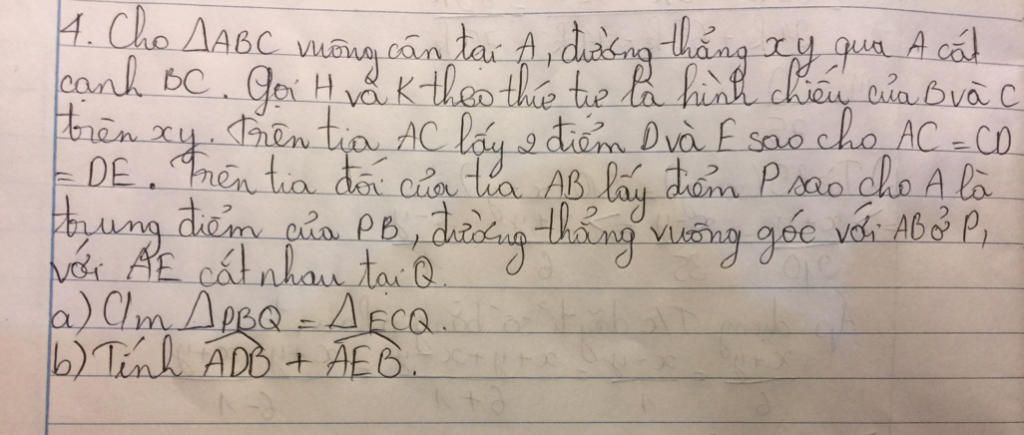 4. Cho ΔABC vuông cân tại A, đường thẳng xy qua A cắt
cạnh BC. Gọi H và K theo thứ tự là hình chiếu của B và C
trên xy. Trên tia AC lấy 2 điểm D và E sao cho AC = CD
= DE. Trên tia đối của tia AB lấy điểm P sao cho A là
trung điểm của PB, đường thẳng vuông góc với AB ở P,
với AE cắt nhau tại Q.
a) C/m ΔPBQ = ΔECQ.
b) Tính ADB + AEB.